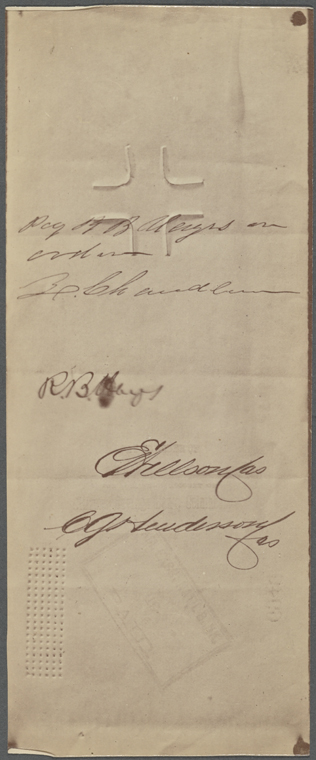 Pay R B Hayes or
order
Z. Chandler
R. B. Hayes
E Wilson Cas
C G Henderson
Cas
PAID